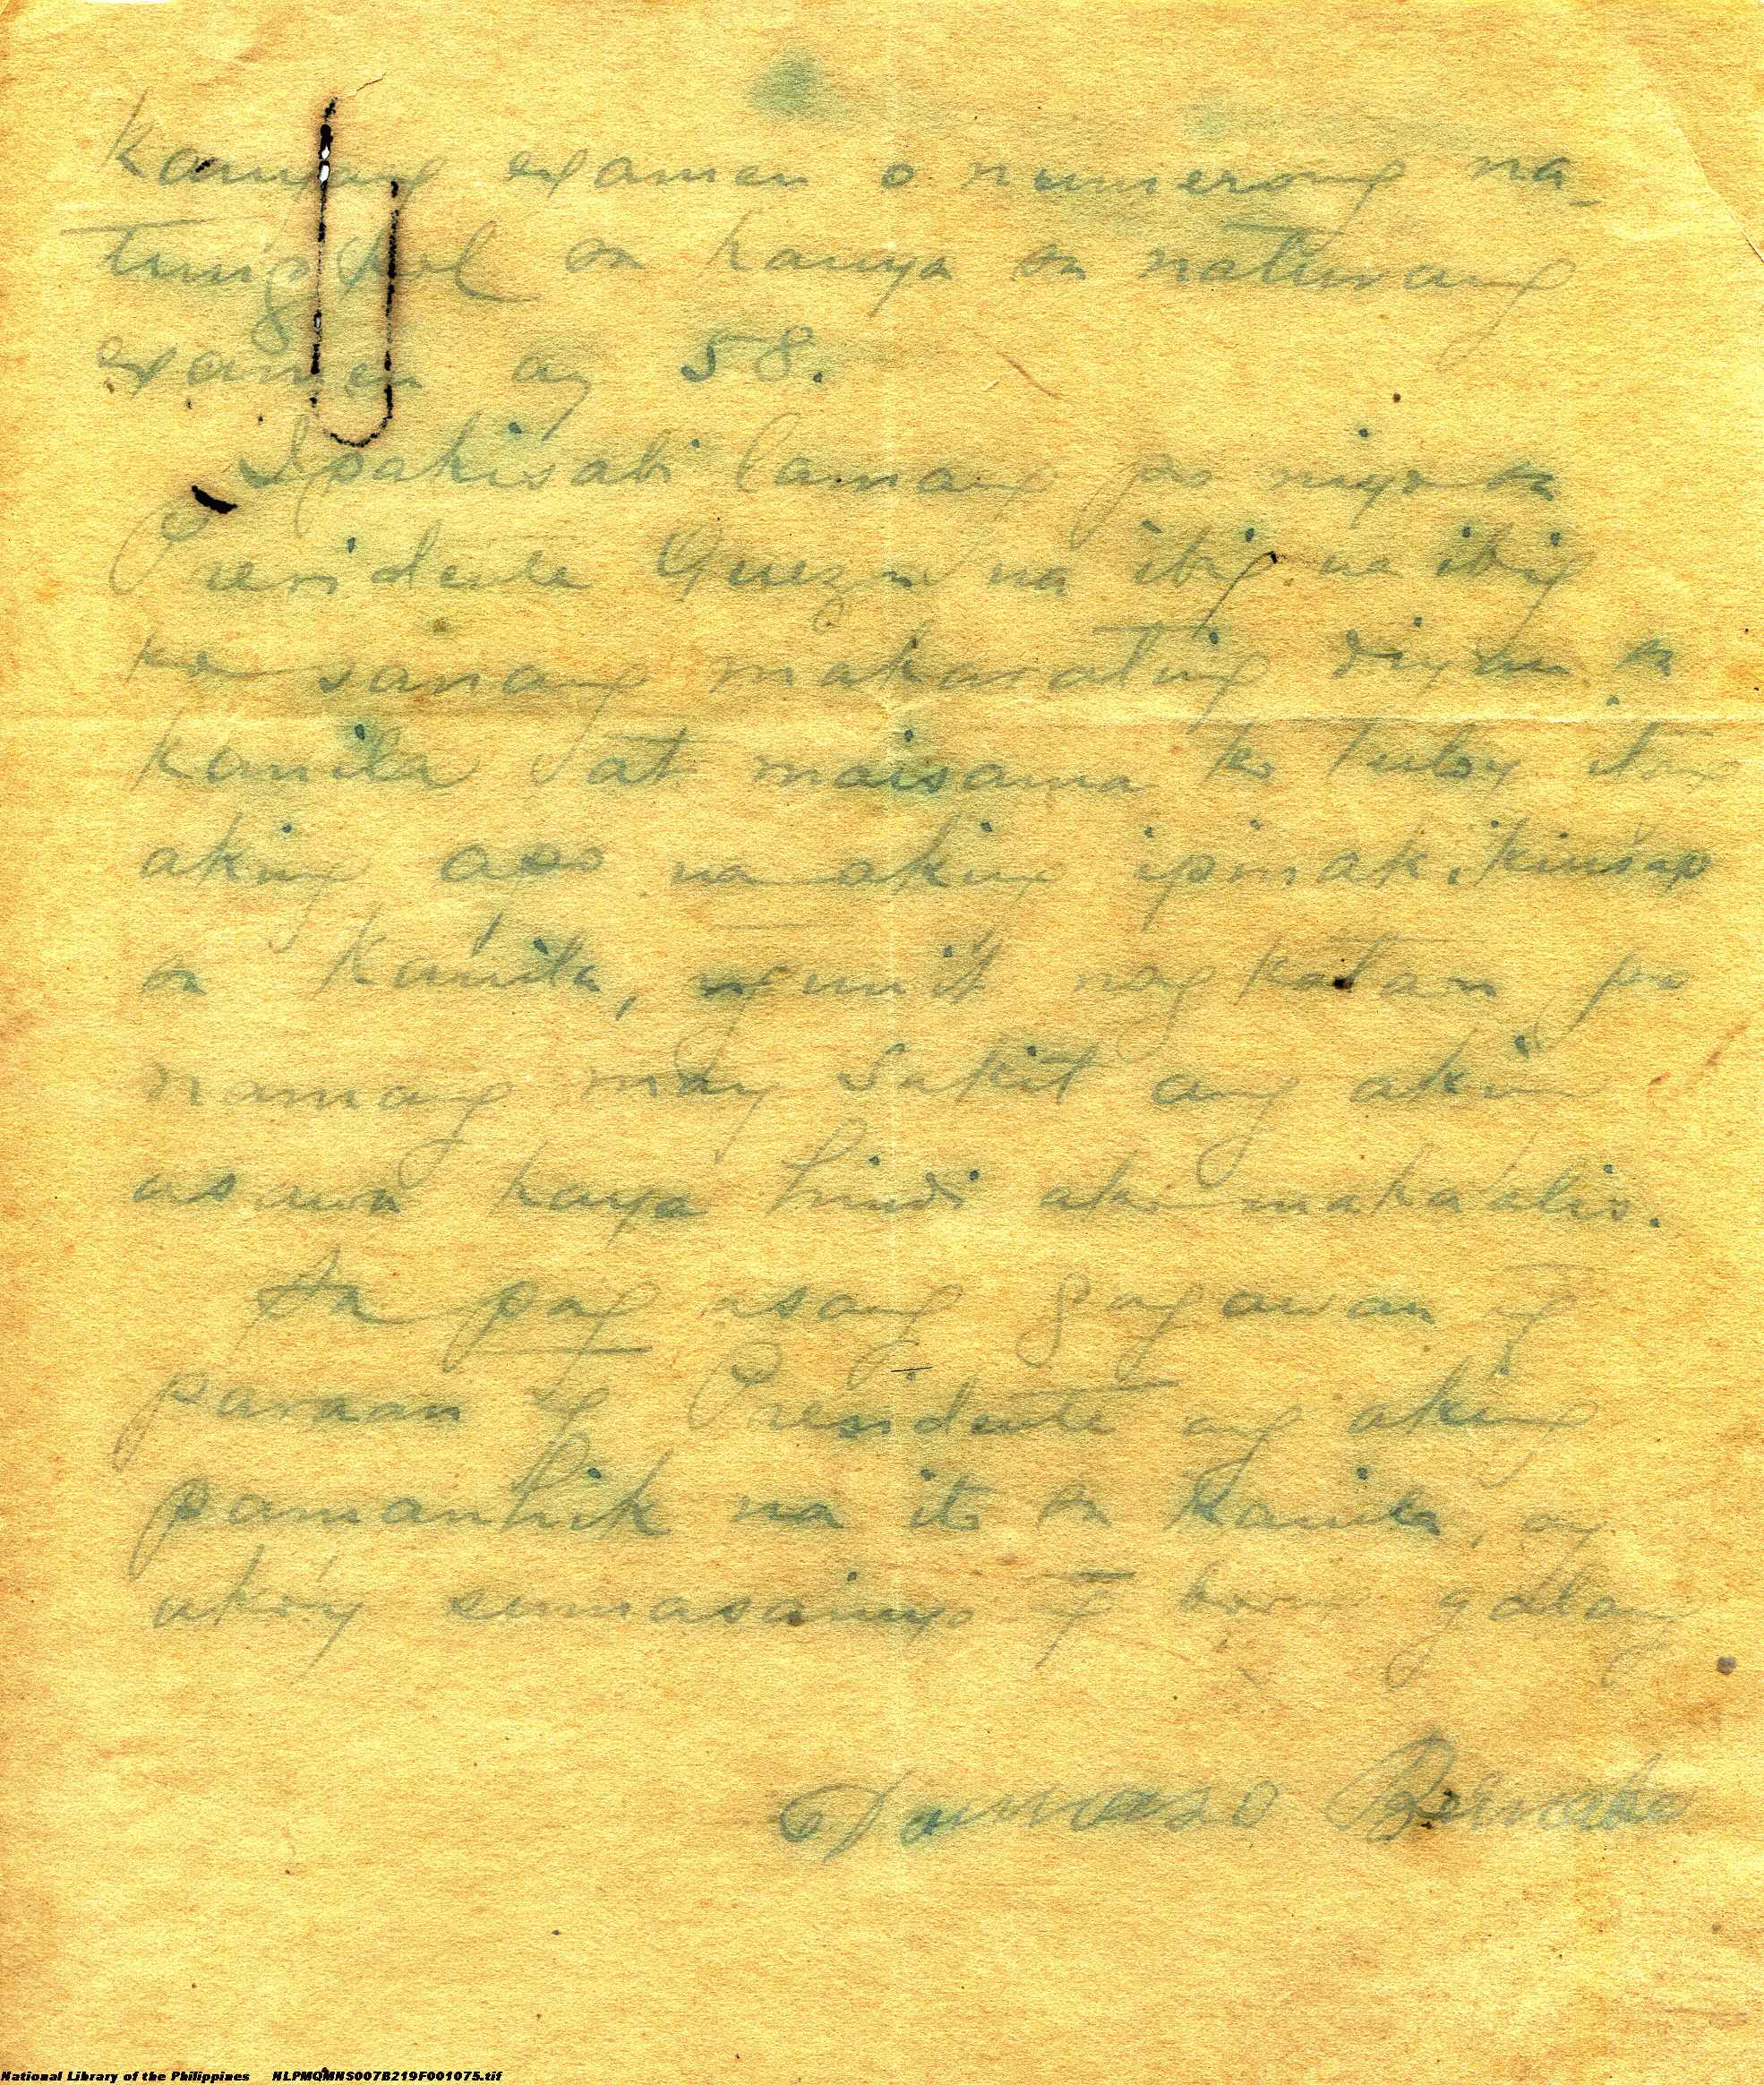 kaniyang examen o numerong na-
tungkol sa kanya sa naturang
examen ay 58.
Ipakisabi lamang po niyo sa
Presidente Quezon na ibig na ibig
ko sanang makarating diyan sa
kanila at maisama ko tuloy itong
aking apo na aking ipinakikiusap
sa kanila, nguni't nagkataon po
namang may sakit ang aking
asawa kaya hindi ako makaalis.
Sa pag asang gagawan ng
paraan ng Presidente ang aking
pamanhik na ito sa kanila, ay
ako'y sumasainyo ng boong galang
Damaso
National Library of the Philippines NLPMQMNS007B219F001075.tif